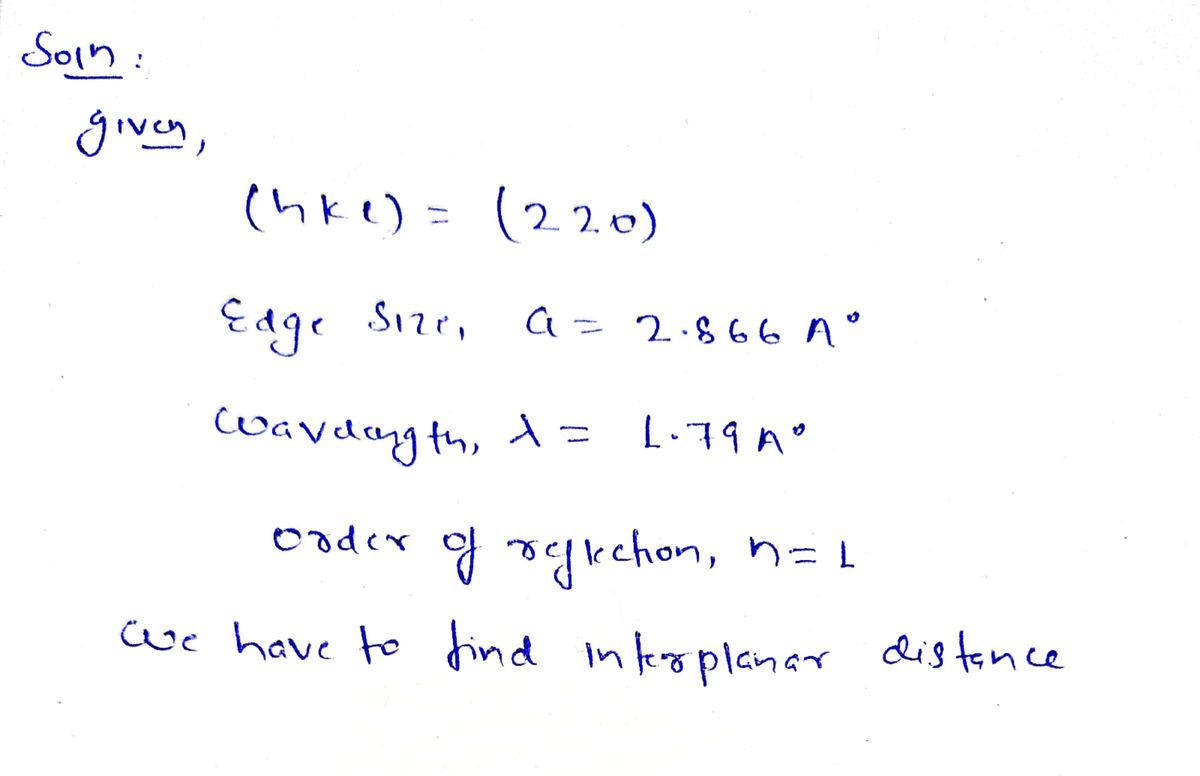 Soln:
given,
(hkl) = (220)
Edge Size, a = 2.866 A°
Wavelength, λ = 1.79 A°
order of reflection, n = 1
we have to find interplanar distance